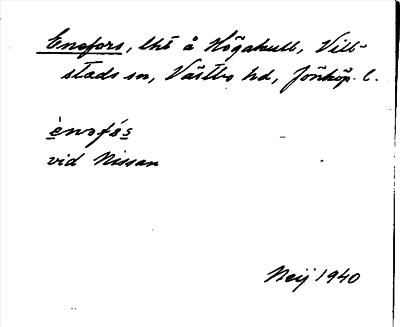 Enefors, lht å Högakull, Vill-
stads sn, Västbo hd, Jönköp. l.
ènəfós
vid Nissan
Neij 1940